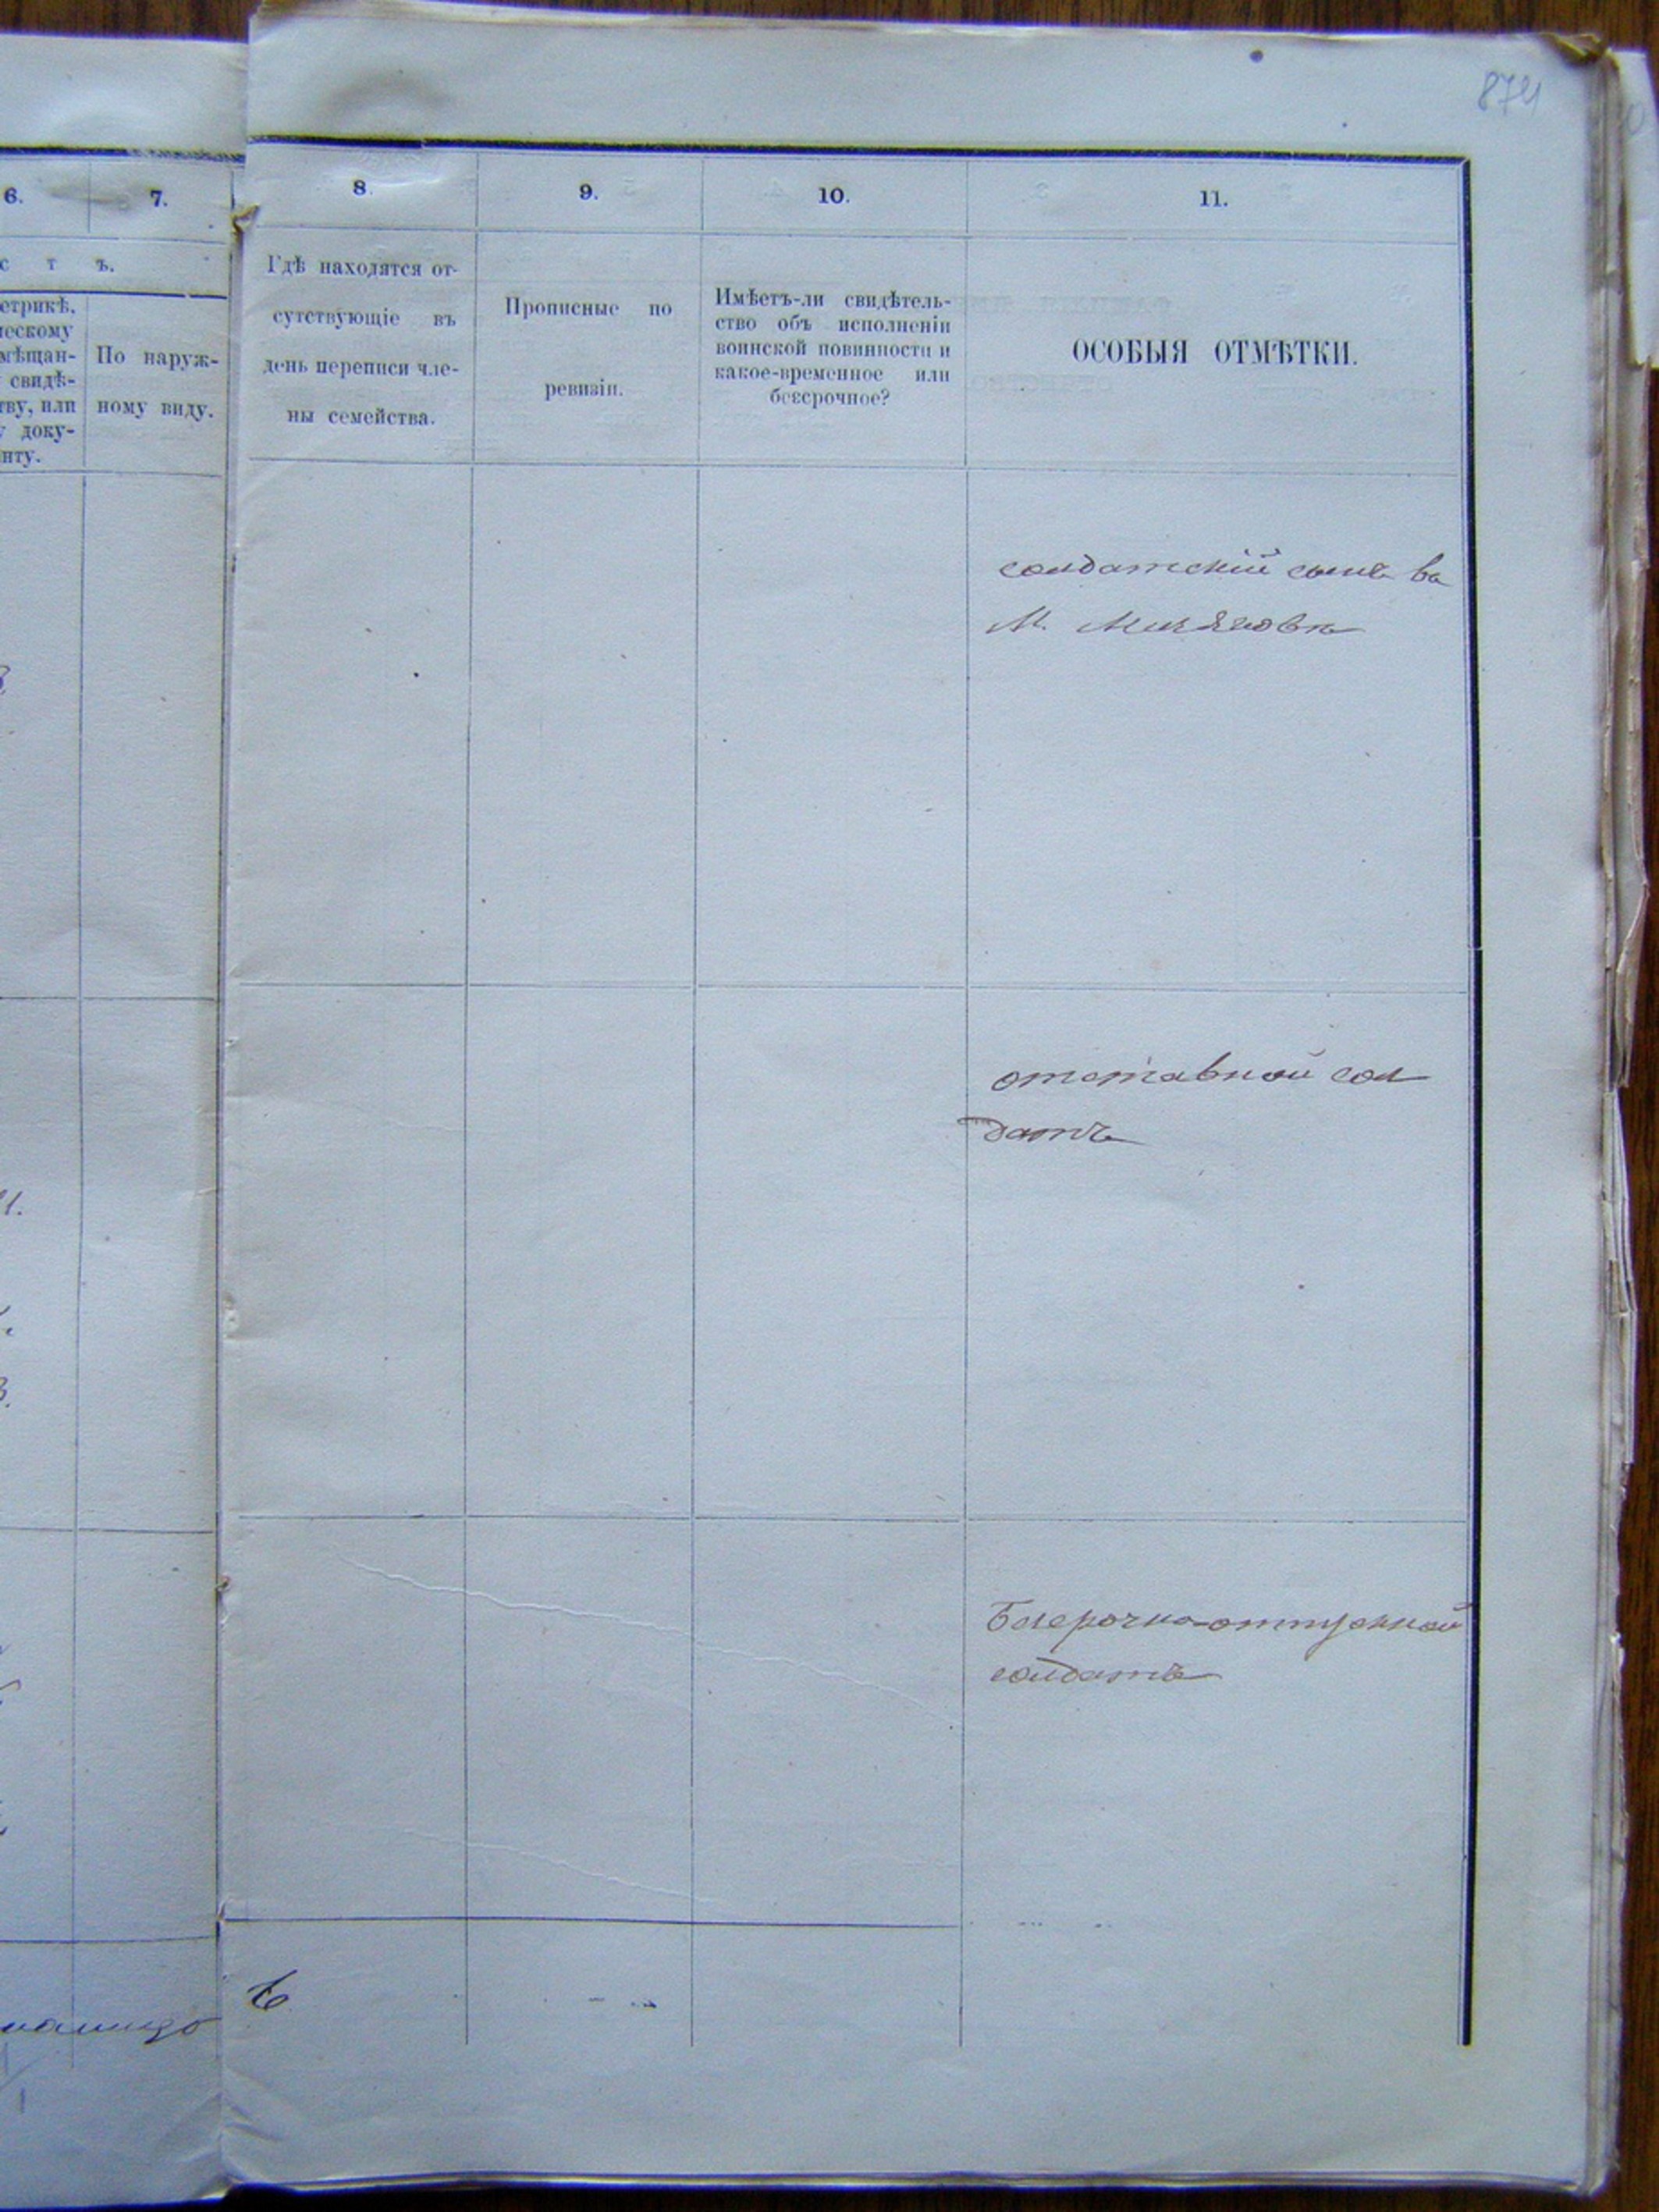 874
6.
7.
8.
9.
10.
11.
с т ъ.
етрикѣ,
ческому
мѣщан-
свидѣ-
тву, или
у доку-
нту.
По наруж-
ному виду.
Гдѣ находятся от-
сутствующіе въ
день переписи чле-
ны семейства.
Прописные по
ревизіи.
Имѣетъ-ли свидѣтель-
ство объ исполненіи
воинской повинности и
какое-временное или
безсрочное?
ОСОБЫЯ ОТМѢТКИ.
солдатскій сынъ въ
М.
отставной сол
датъ
Безсрочно-отпускной
солдатъ